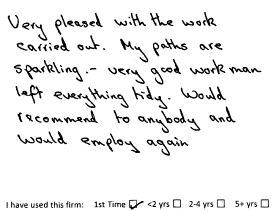 Very pleased with the work
carried out. My paths are
sparkling.- very good workman
left everything tidy. Would
recommend to anybody and
would employ again
I have used this firm: 1st Time ☑ <2 yrs ☐ 2-4 yrs ☐ 5+ yrs ☐